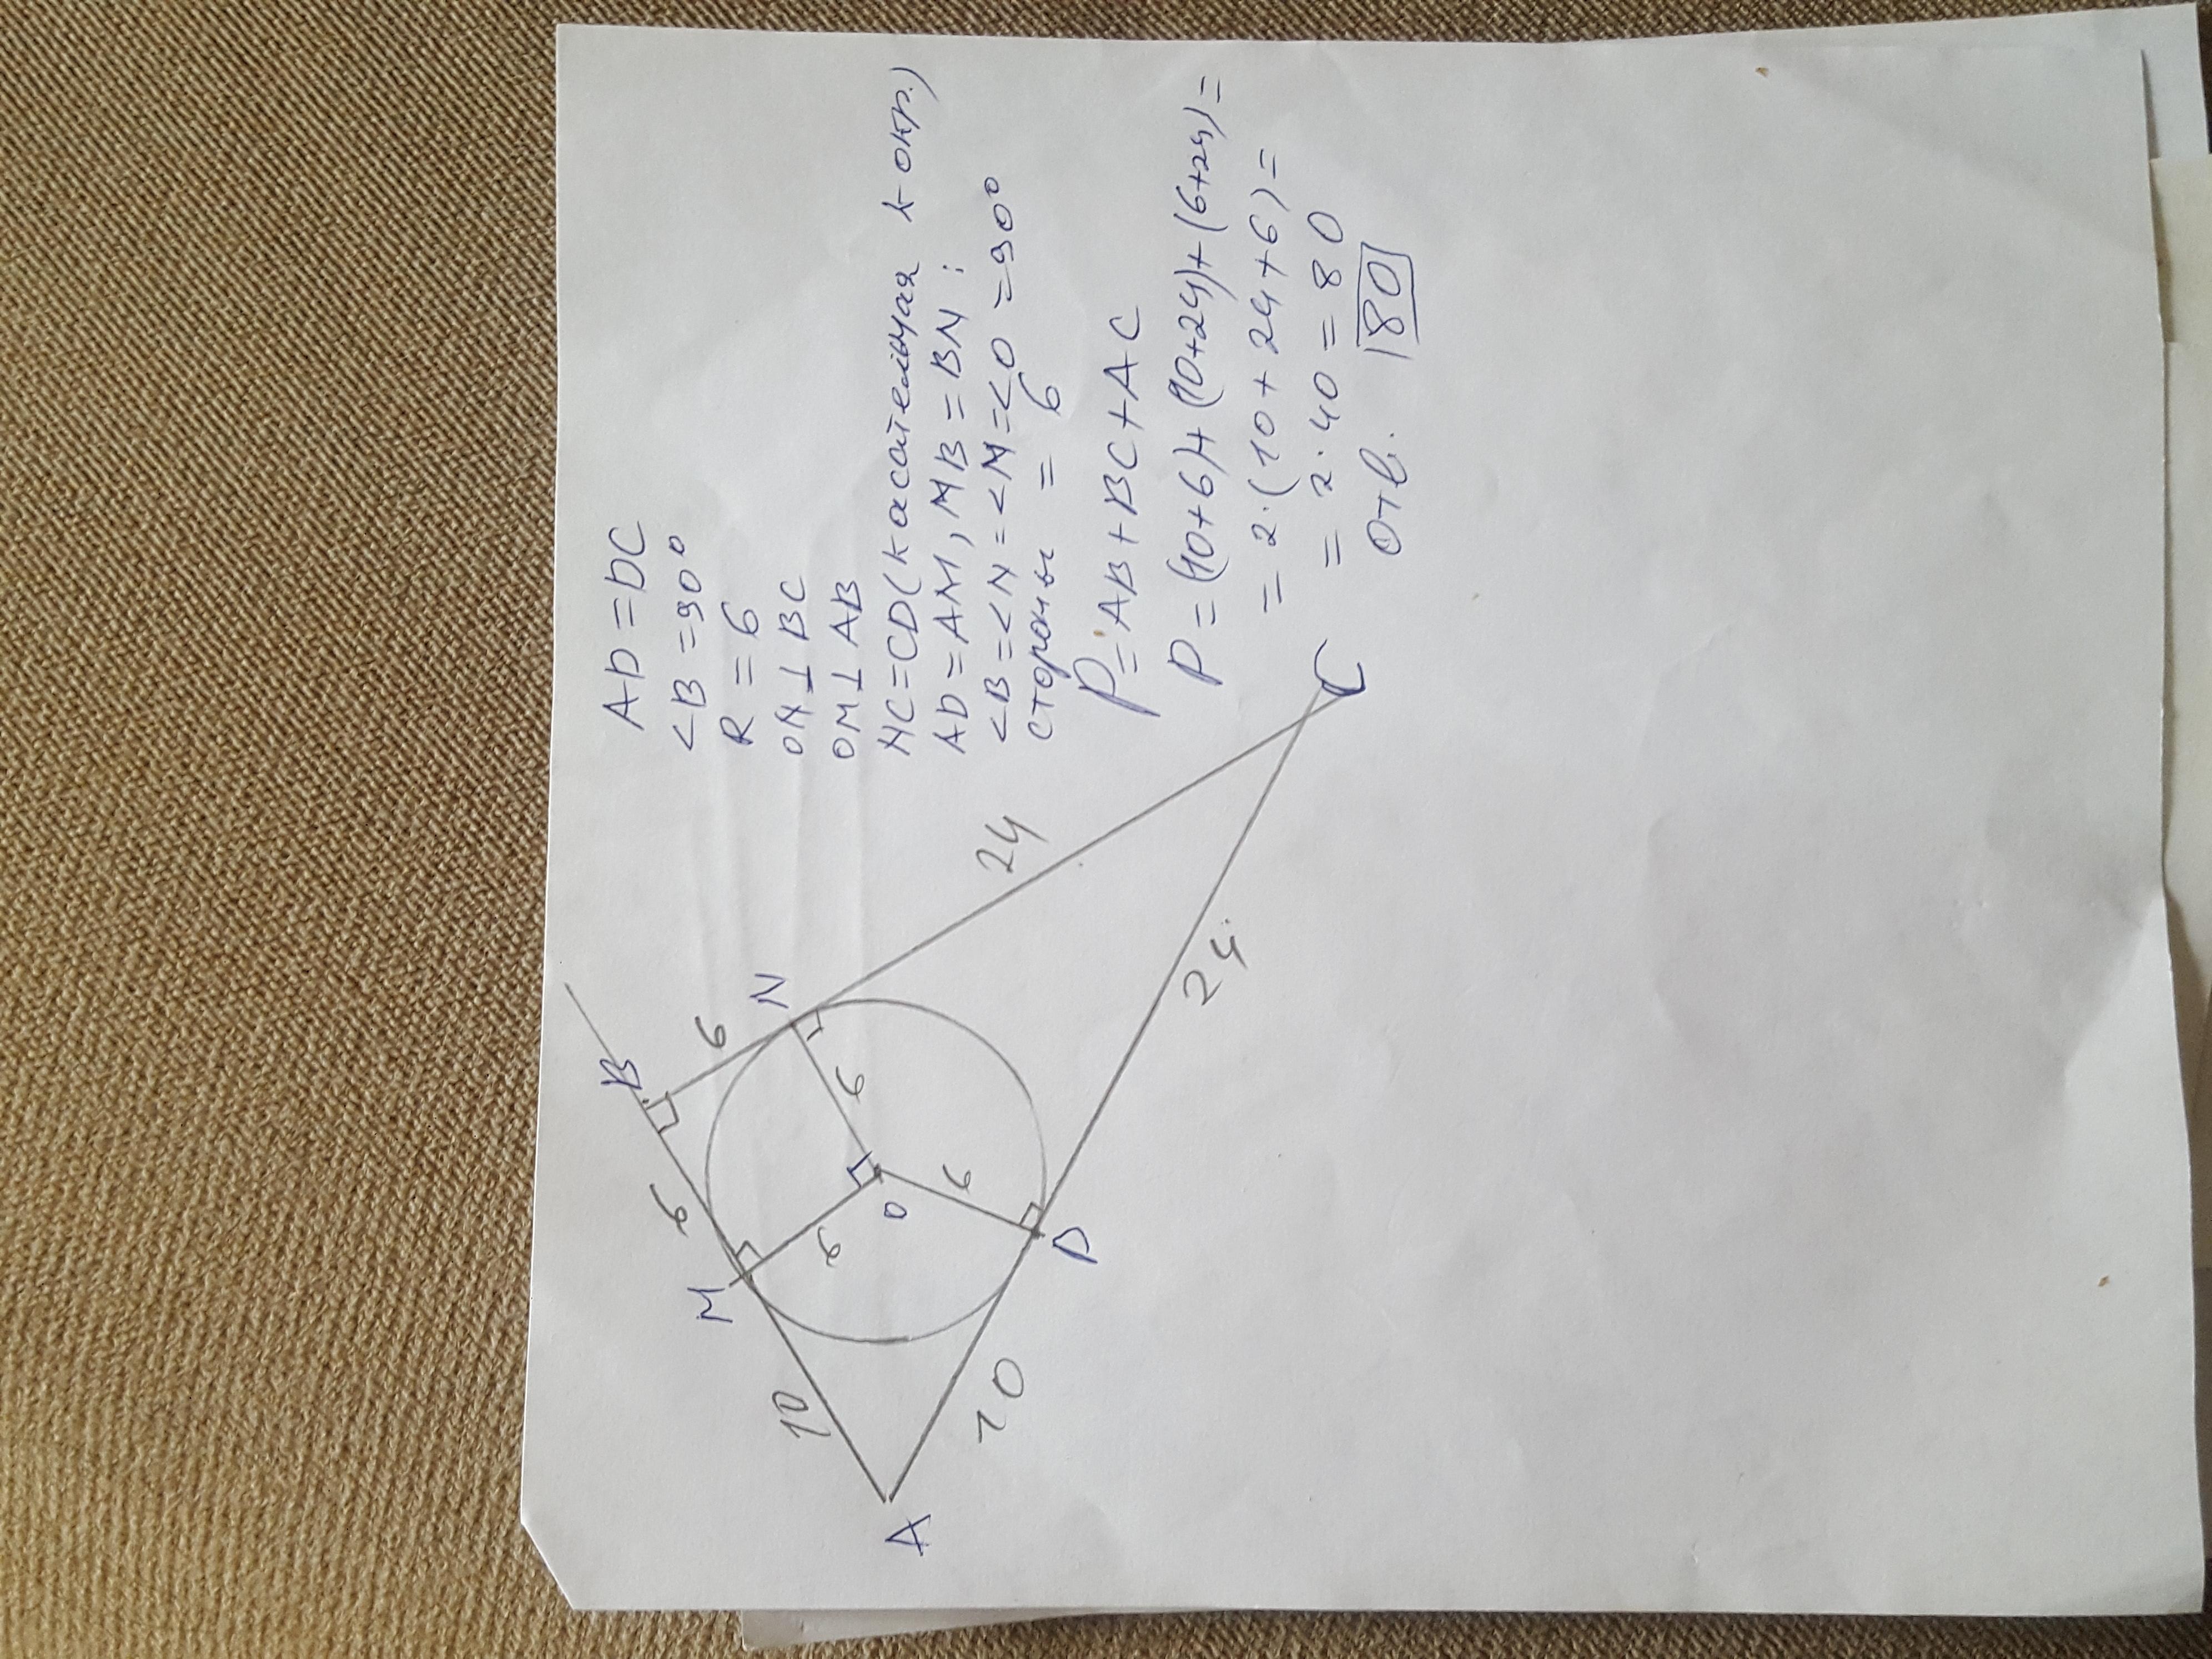 AD = DC
<B = 90°
R = 6
ON ⊥ BC
OM ⊥ AB
NC = CD (касательная к окр.)
AD = AM, MB = BN;
<B = <N = <M = <O = 90°
стороны = 6
P = AB + BC + AC
P = (10+6) + (10+24) + (6+24) =
= 2·(10+24+6) =
= 2·40 = 80
Отв. 80
A
M
B
N
C
D
O
10
6
6
24
24
10
6
6
6